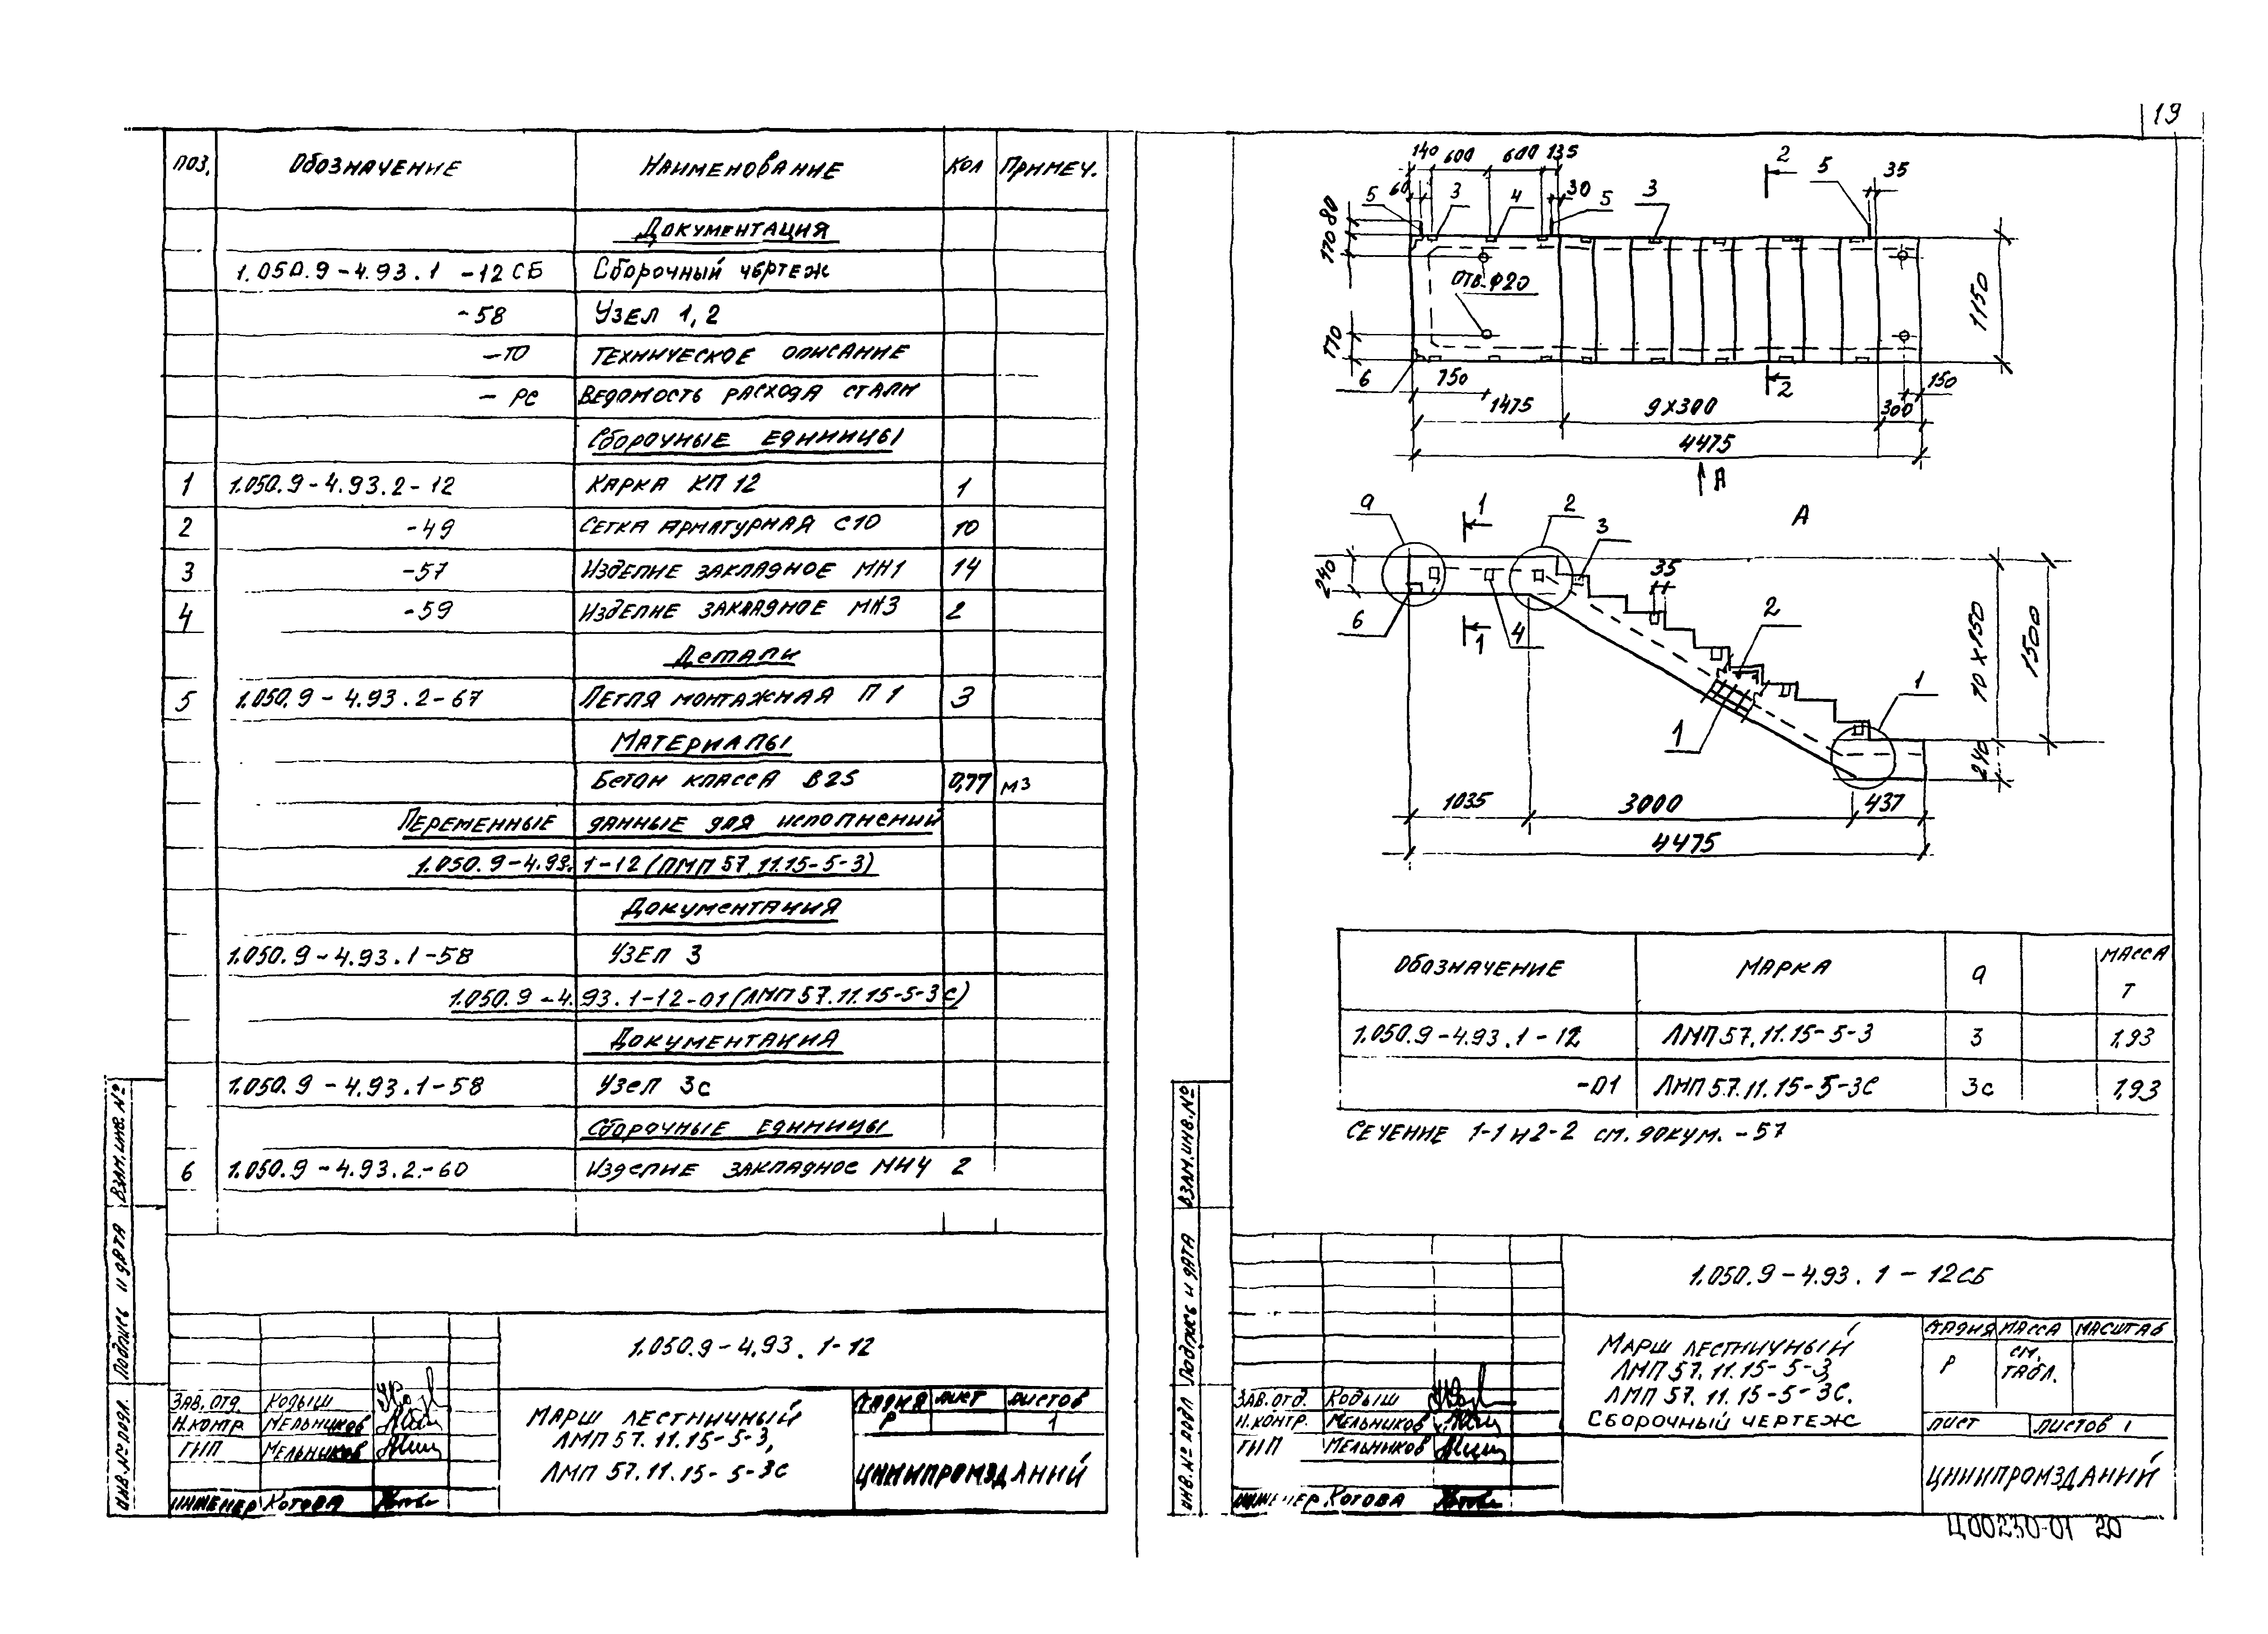 19
ПОЗ. ОБОЗНАЧЕНИЕ НАИМЕНОВАНИЕ КОЛ ПРИМЕЧ.
ДОКУМЕНТАЦИЯ
1.050.9-4.93.1-12СБ СБОРОЧНЫЙ ЧЕРТЕЖ
-58 УЗЕЛ 1,2
-ТО ТЕХНИЧЕСКОЕ ОПИСАНИЕ
-РС ВЕДОМОСТЬ РАСХОДА СТАЛИ
СБОРОЧНЫЕ ЕДИНИЦЫ
1 1.050.9-4.93.2-12 КАРКА КП 12 1
2 -49 СЕТКА АРМАТУРНАЯ С10 10
3 -57 ИЗДЕЛИЕ ЗАКЛАДНОЕ МН1 14
4 -59 ИЗДЕЛИЕ ЗАКЛАДНОЕ МН3 2
ДЕТАЛИ
5 1.050.9-4.93.2-67 ПЕТЛЯ МОНТАЖНАЯ П1 3
МАТЕРИАЛЫ
БЕТОН КЛАССА В25 0,77 М3
ПЕРЕМЕННЫЕ ДАННЫЕ ДЛЯ ИСПОЛНЕНИЙ
1.050.9-4.93.1-12 (ЛМП 57.11.15-5-3)
ДОКУМЕНТАЦИЯ
1.050.9-4.93.1-58 УЗЕЛ 3
1.050.9-4.93.1-12-01 (ЛМП 57.11.15-5-3С)
ДОКУМЕНТАЦИЯ
1.050.9-4.93.1-58 УЗЕЛ 3с
СБОРОЧНЫЕ ЕДИНИЦЫ
6 1.050.9-4.93.2-60 ИЗДЕЛИЕ ЗАКЛАДНОЕ МН4 2
1.050.9-4.93.1-12
ЗАВ.ОТД. КОДЫШ
Н.КОНТР. МЕЛЬНИКОВ
ГИП МЕЛЬНИКОВ
ИНЖЕНЕР КОТОВА
МАРШ ЛЕСТНИЧНЫЙ
ЛМП 57.11.15-5-3,
ЛМП 57.11.15-5-3С
СТАДИЯ ЛИСТ ЛИСТОВ
Р 1
ЦНИИПРОМЗДАНИЙ
ИНВ.№ ПОДЛ. ПОДПИСЬ И ДАТА ВЗАМ.ИНВ.№
140 600 600 135 2 5 35
5 60 3 4 30 5 3
80
170
ОТВ.Ф20
170
1150
6 750 2 150
1475 9×300 300
4475
А
а 1 2 3 А
240
35
6 1 4 2
1 1
10×150 1500
240
1035 3000 437
4475
ОБОЗНАЧЕНИЕ МАРКА а МАССА Т
1.050.9-4.93.1-12 ЛМП 57.11.15-5-3 3 1,93
-01 ЛМП 57.11.15-5-3С 3с 1,93
СЕЧЕНИЕ 1-1 и 2-2 СМ. ДОКУМ. -57
1.050.9-4.93.1-12СБ
ЗАВ.ОТД. КОДЫШ
Н.КОНТР. МЕЛЬНИКОВ
ГИП МЕЛЬНИКОВ
ИНЖЕНЕР КОТОВА
МАРШ ЛЕСТНИЧНЫЙ
ЛМП 57.11.15-5-3,
ЛМП 57.11.15-5-3С.
СБОРОЧНЫЙ ЧЕРТЕЖ
СТАДИЯ МАССА МАСШТАБ
Р СМ. ТАБЛ.
ЛИСТ ЛИСТОВ 1
ЦНИИПРОМЗДАНИЙ
ИНВ.№ ПОДЛ ПОДПИСЬ И ДАТА ВЗАМ.ИНВ.№
Ц00230-01 20